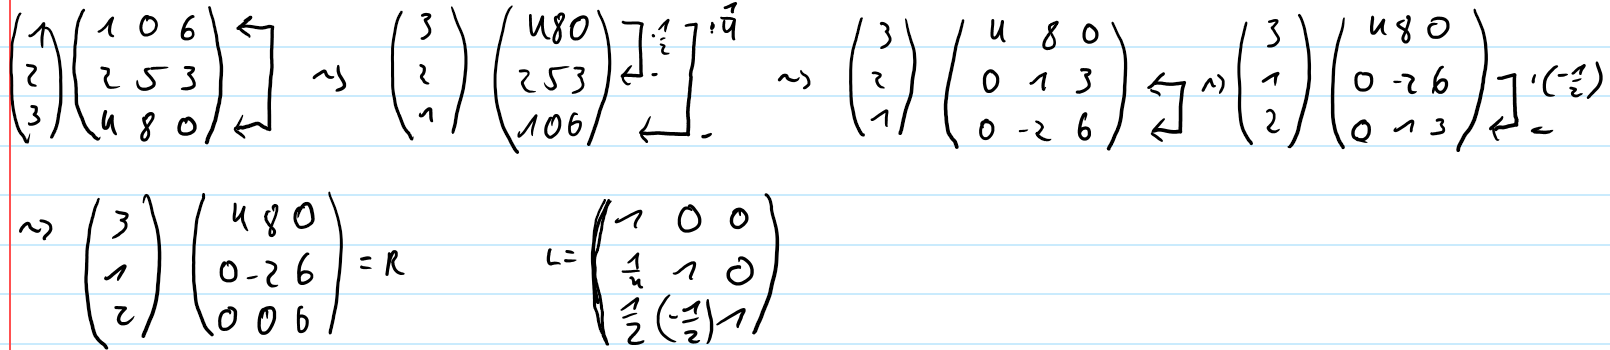 (1 2 3) (1 0 6; 2 5 3; 4 8 0) ⇝ (3 2 1) (4 8 0; 2 5 3; 1 0 6) ·1/2 - ·1/4 - ⇝ (3 2 1) (4 8 0; 0 1 3; 0 -2 6) ⇝ (3 1 2) (4 8 0; 0 -2 6; 0 1 3) ·(-1/2) -
⇝ (3 1 2) (4 8 0; 0 -2 6; 0 0 6) = R L = (1 0 0; 1/4 1 0; 1/2 (-1/2) 1)